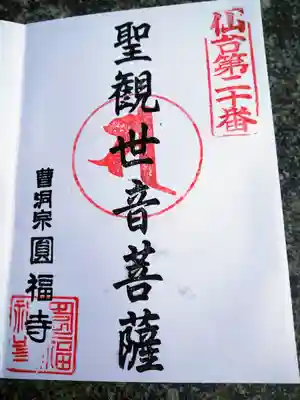 仙台第二十番
聖観世音菩薩
曹洞宗圓福寺